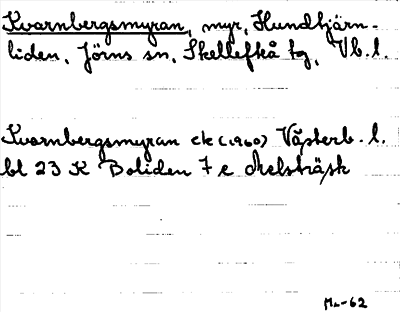 Kvarnbergsmyran, myr, Hundtjärn-
liden, Jörns sn, Skellefteå tg, Vb. l.
Kvarnbergsmyran ek (1960) Västerb. l.
bl 23 K Boliden 7 e Melsträsk
-62